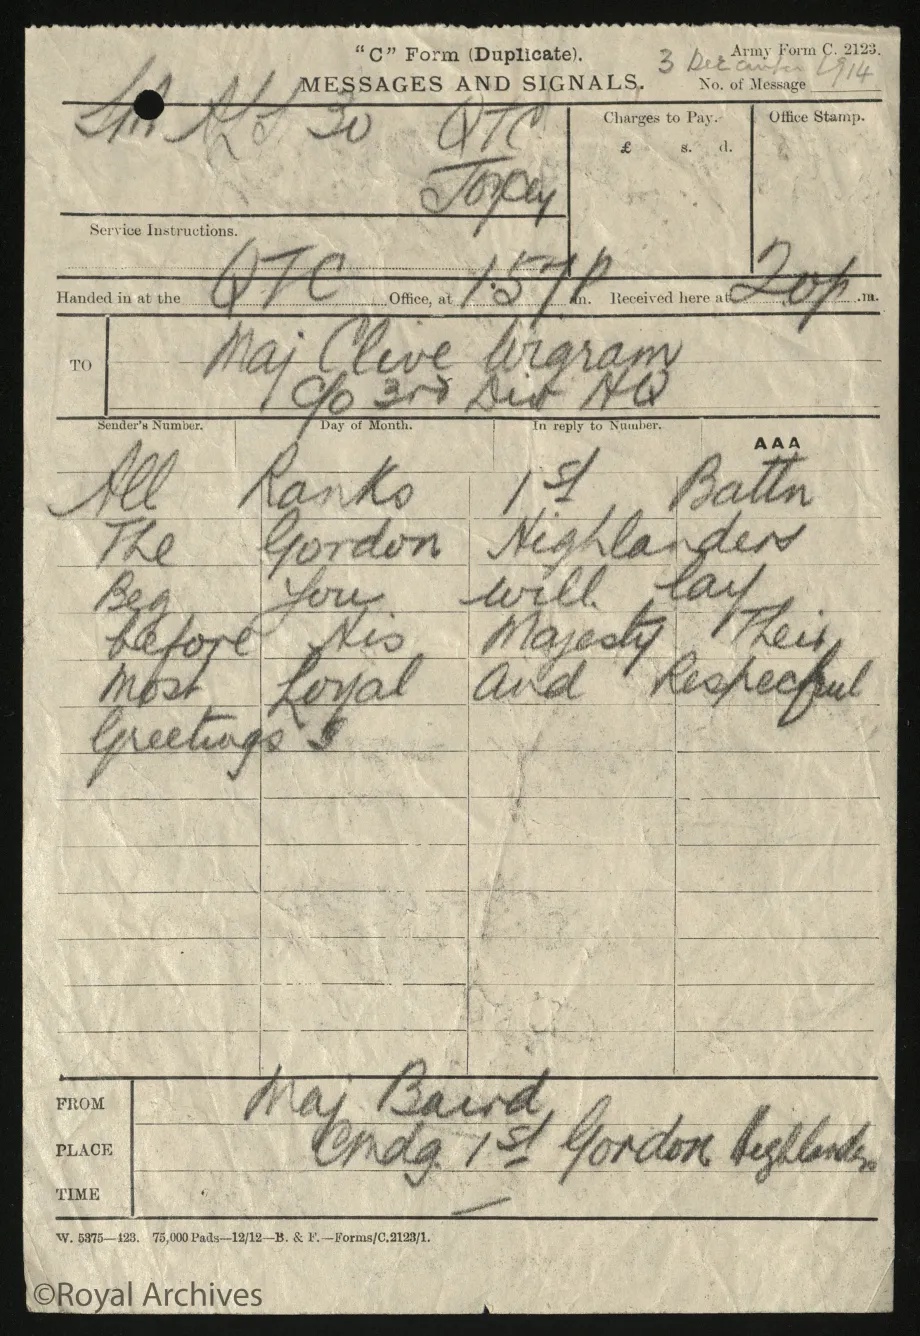 "C" Form (Duplicate).
Army Form C. 2123.
3 December 1914
MESSAGES AND SIGNALS.
No. of Message
30 QTC
Charges to Pay.
£ s. d.
Office Stamp.
Service Instructions.
Handed in at the QTC Office, at 1.57 P m. Received here at 2.0 p .m.
TO
Maj Clive Wigram
c/o 3rd Div HQ
Sender's Number. Day of Month. In reply to Number. AAA
All Ranks 1st Battn
The Gordon Highlanders
Beg you will lay
before His Majesty Their
Most Loyal and Respectful
Greetings
FROM Maj Baird
PLACE Cmdg 1st Gordon Highlanders
TIME
W. 5375—423. 75,000 Pads—12/12—B. & F.—Forms/C.2123/1.
©Royal Archives